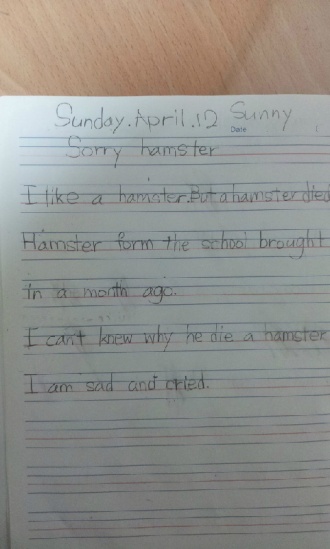 Sunday.April.12 Sunny
Date
Sorry hamster
I like a hamster.But a hamster died
Hamster form the school brought
in a month ago.
I can't knew why he die a hamster
I am sad and cried.